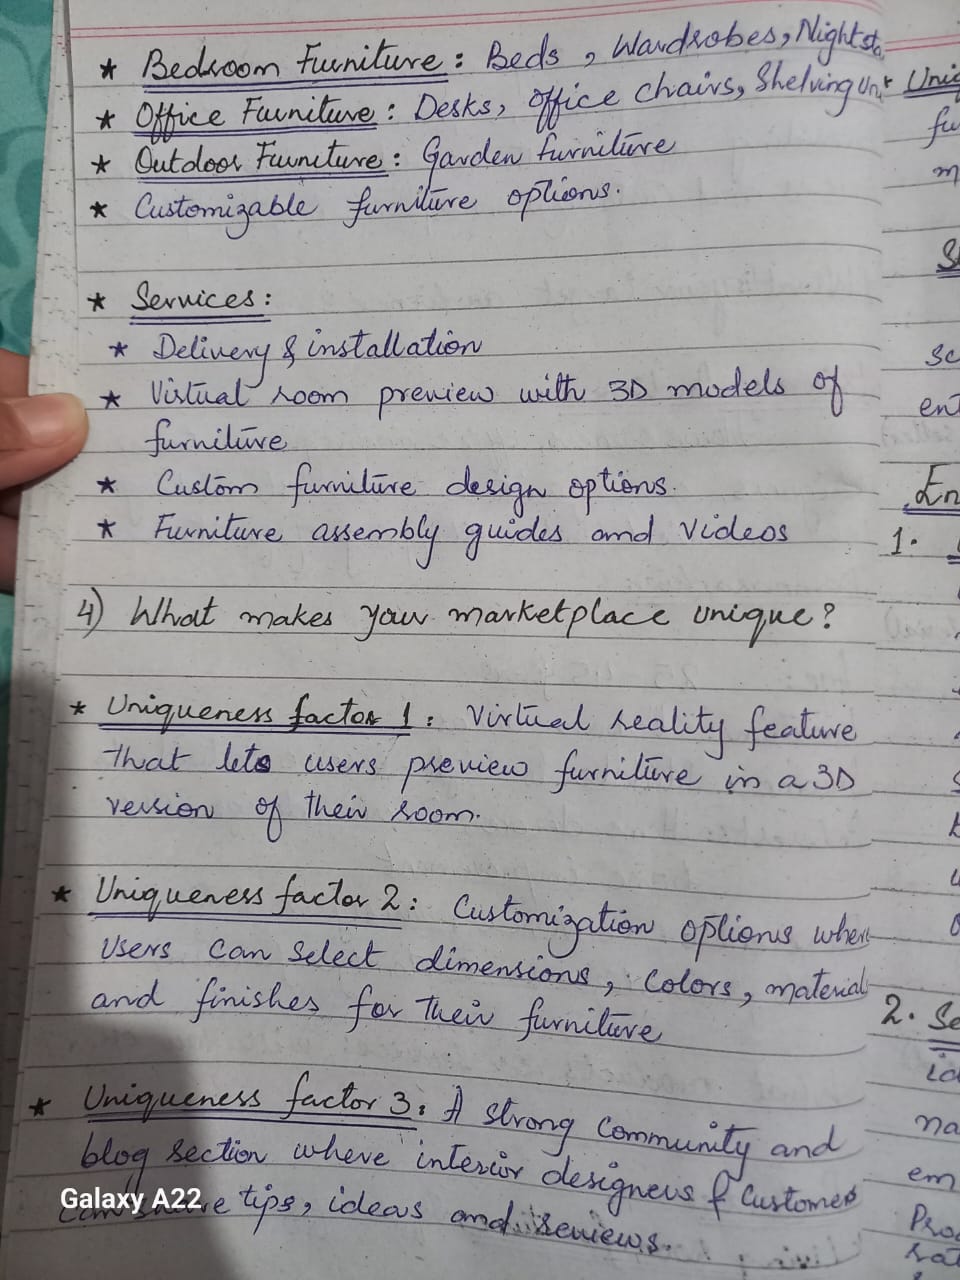 * Bedroom Furniture: Beds, Wardrobes, Nightsta
* Office Furniture: Desks, office chairs, Shelving Unit
* Outdoor Furniture: Garden furniture
* Customizable furniture options.
* Services:
* Delivery & installation
* Virtual room preview with 3D models of
furniture
* Custom furniture design options.
* Furniture assembly guides and Videos
4) What makes your marketplace unique?
* Uniqueness factor 1: Virtual reality feature
that lets users preview furniture in a 3D
version of their room.
* Uniqueness factor 2: Customization options where
Users can select dimensions, colors, material
and finishes for their furniture
* Uniqueness factor 3: A strong Community and
blog section where interior designers & Customers
tips, ideas and reviews.
Galaxy A22
Uniq
fu
m
S
sc
ent
En
1.
2. Se
id
na
em
Pro
rat